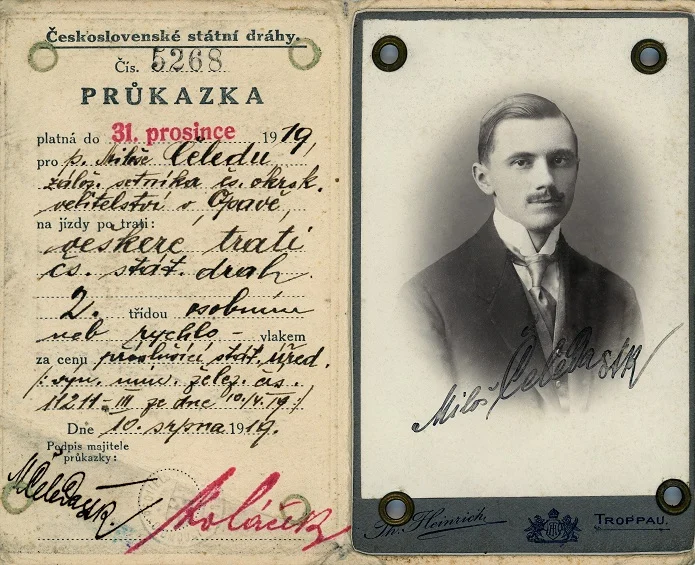 Československé státní dráhy.
Čís. 5268
PRŮKAZKA
platná do 31. prosince 1919,
pro p. Miloše Čeledu,
zálož. setníka čs. okrsk.
velitelství v Opavě,
na jízdy po trati:
veškeré trati
čs. stát. drah.
2. třídou osobním
neb rychlo- vlakem
za cenu příslušící stát. úřed.
/: vyn. min. želez. čís.
11211-III ze dne 10./V.19:/
Dne 10. srpna 1919.
Podpis majitele
průkazky:
MČeleda
Miloš Čeleda
Th. Heinrich.
TROPPAU.